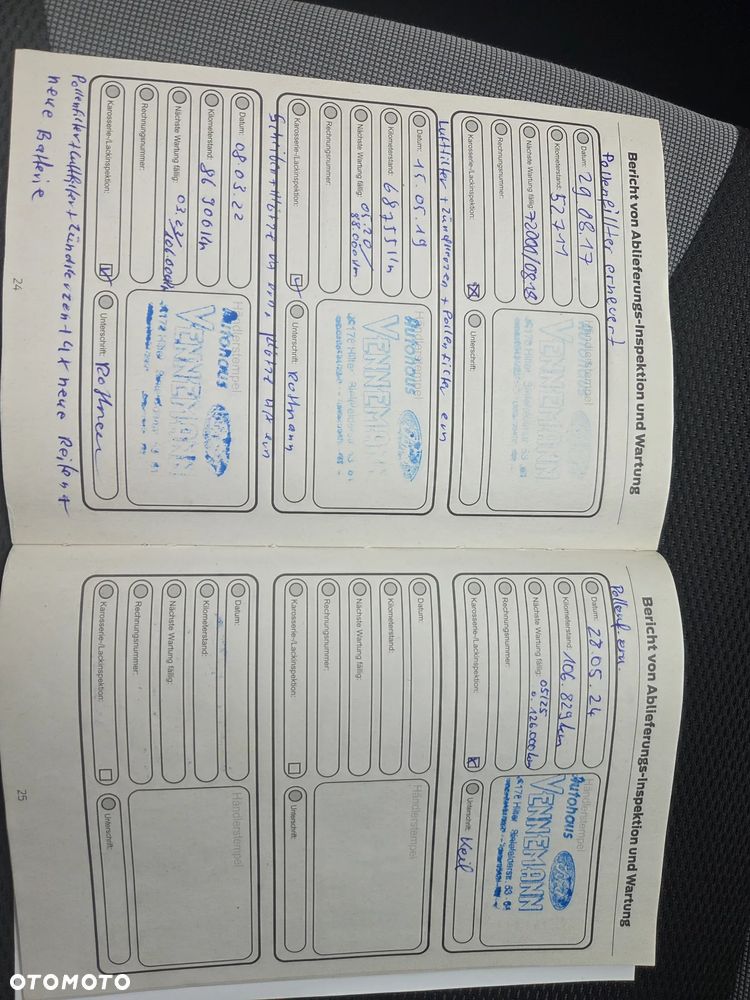 Bericht von Ablieferungs-Inspektion und Wartung
Pollenfillter erneuert
Datum: 29.08.17
Kilometerstand: 52711
Nächste Wartung fällig: 72000/08.18
Rechnungsnummer:
Karosserie-/Lackinspektion: x
Händlerstempel
VENNEMANN
Unterschrift:
Luftfilter + Zündkerzen + Pollenfilter ern
Datum: 15.05.19
Kilometerstand: 68755 km
Nächste Wartung fällig: 05.20/
88.000 km
Rechnungsnummer:
Karosserie-/Lackinspektion:
Händlerstempel
Autohaus
VENNEMANN
Unterschrift: Rottmann
Datum: 08.03.22
Kilometerstand: 86906 km
Nächste Wartung fällig: 03.23/
106.000 km
Rechnungsnummer:
Karosserie-/Lackinspektion:
Händlerstempel
Autohaus
VENNEMANN
Unterschrift:
Pollenfilter + Luftfilter + Zündkerzen + 4x neue Reifen +
neue Batterie
24
Bericht von Ablieferungs-Inspektion und Wartung
Pollenf. ern.
Datum: 28.05.24
Kilometerstand: 106 829 km
Nächste Wartung fällig: 05/25
o. 126.000 km
Rechnungsnummer:
Karosserie-/Lackinspektion: x
Händlerstempel
Autohaus
VENNEMANN
Hilter
Unterschrift: Keil
Datum:
Kilometerstand:
Nächste Wartung fällig:
Rechnungsnummer:
Karosserie-/Lackinspektion:
Händlerstempel
Unterschrift:
Datum:
Kilometerstand:
Nächste Wartung fällig:
Rechnungsnummer:
Karosserie-/Lackinspektion:
Händlerstempel
Unterschrift:
25
OTOMOTO